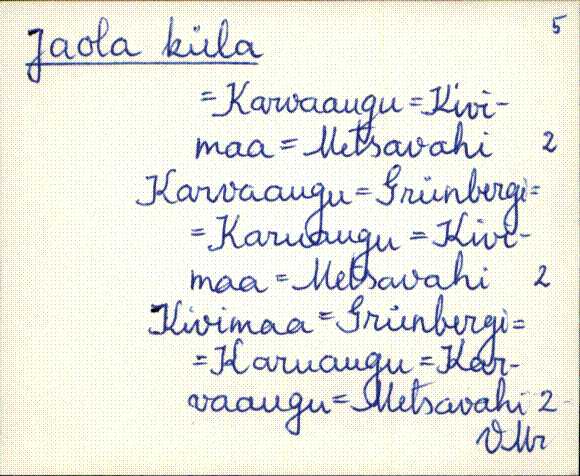 5
Jaola küla
=Karvaaugu=Kivi-
maa=Metsavahi 2
Karvaaugu=Grünbergi=
=Karuaugu=Kivi-
maa=Metsavahi 2
Kivimaa=Grünbergi=
=Karuaugu=Kar-
vaaugu=Metsavahi 2
VMr